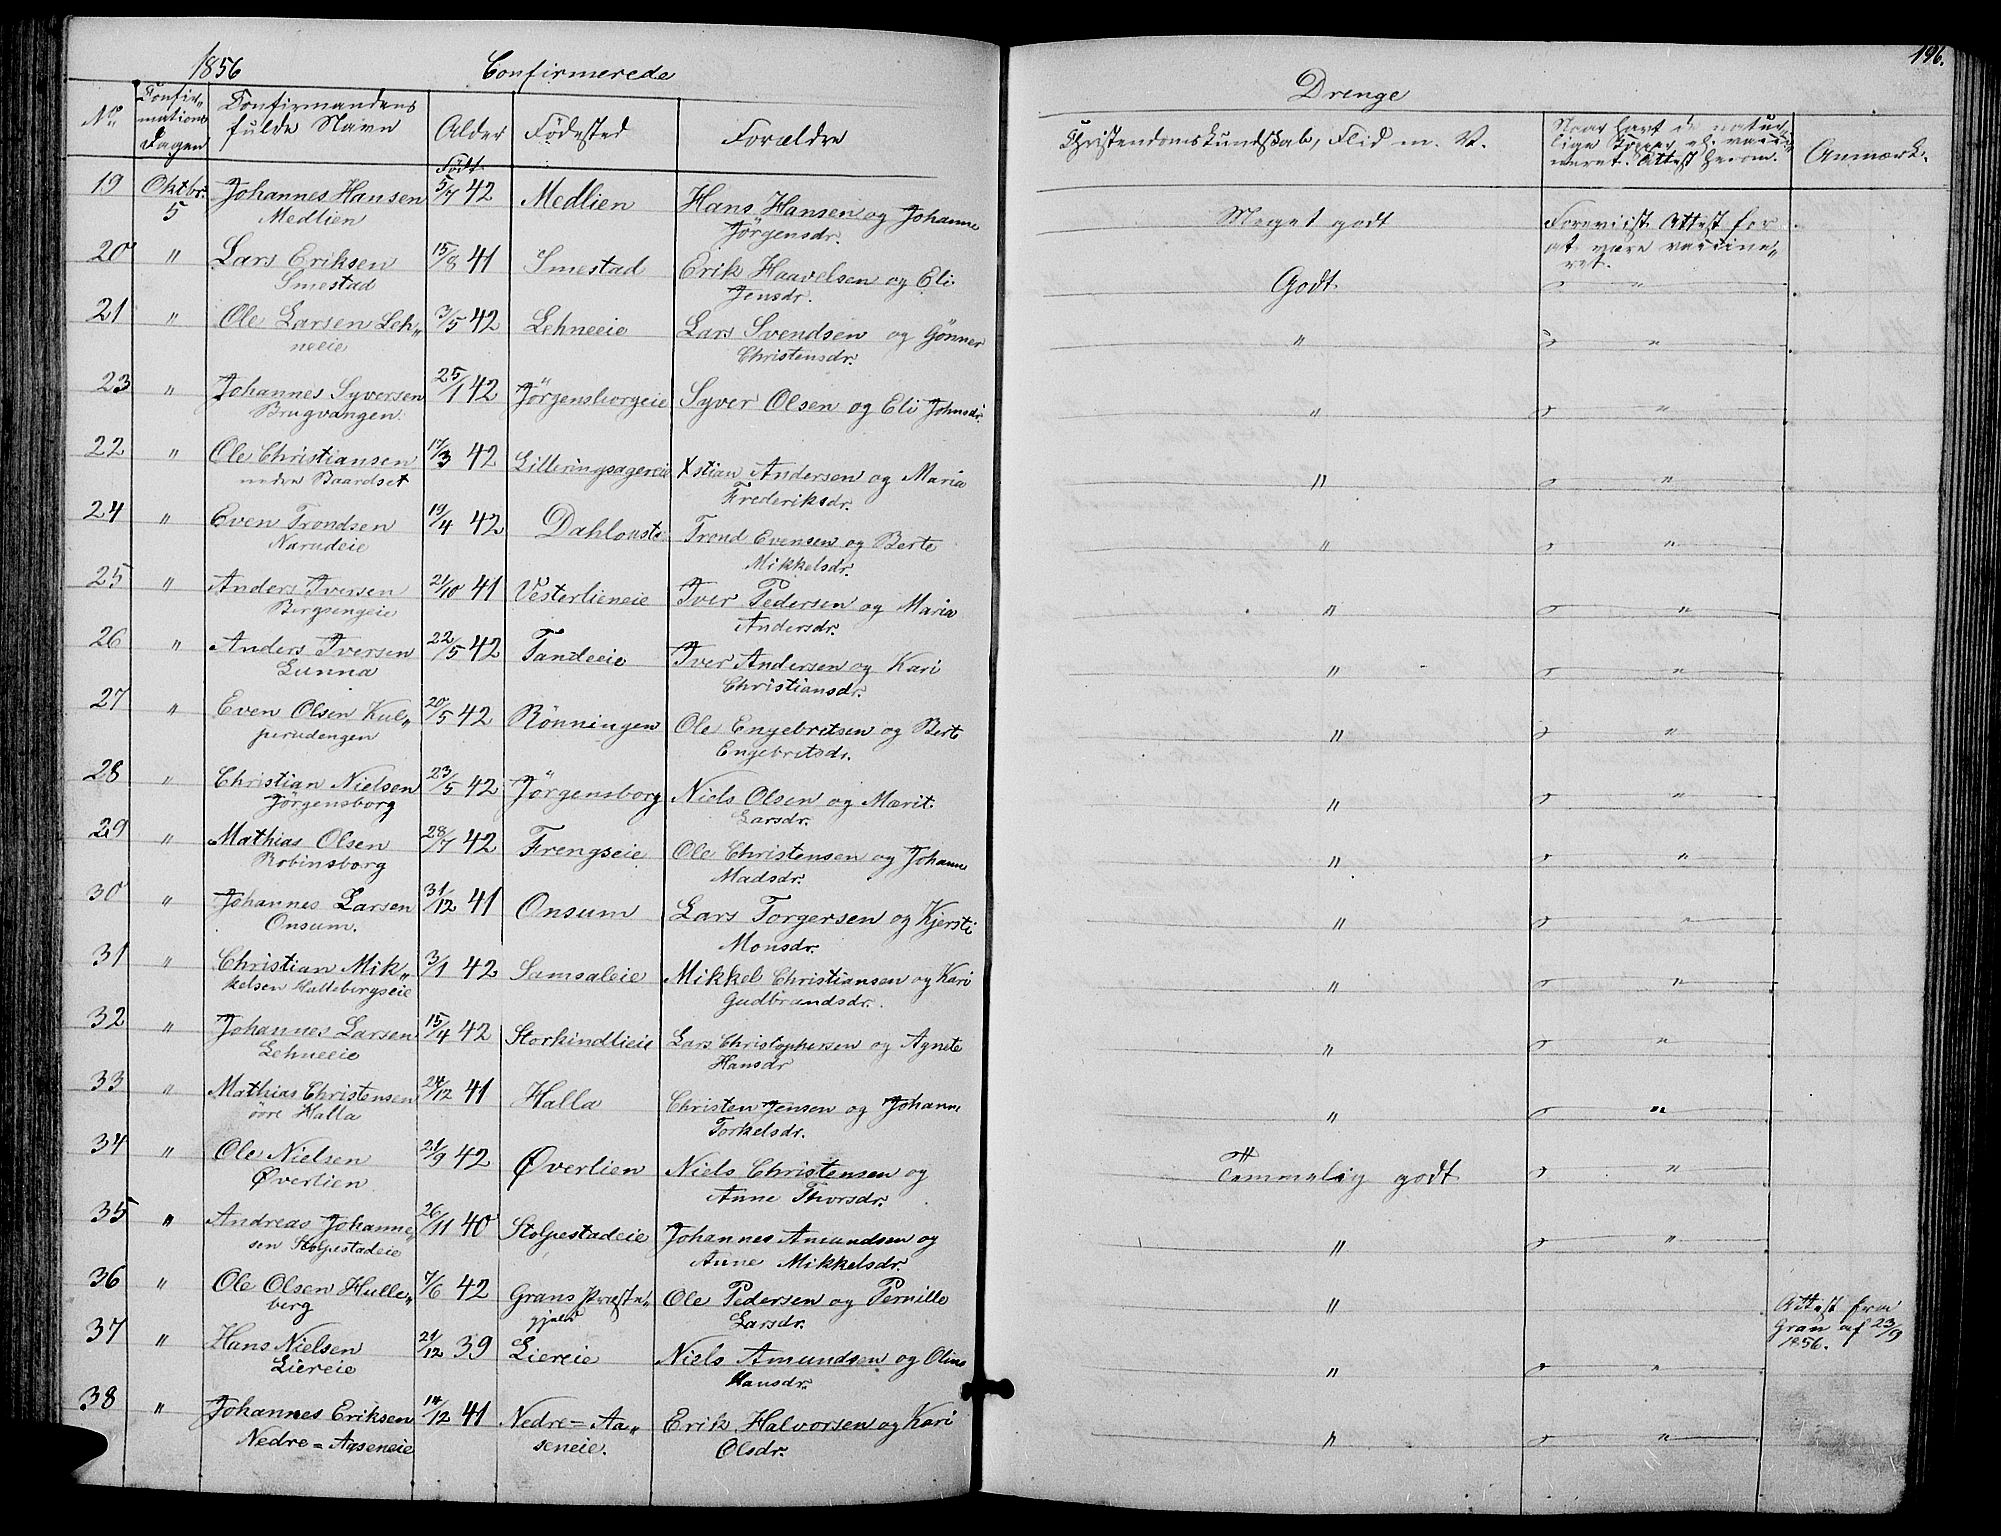 1856 Confirmerede
Drenge 196.
No. Confir„ Confirmandens Alder Fødested Forældre Christendomskundskab, Flid m. V. Naar havt de natur„ Anmærk.
mations fulde Navn lige Kopper el. vacci„
Dagen Født neret. Attest herom.
19 Oktbr. Johannes Hansen 5/7 42 Medlien Hans Hansen og Johanne Meget godt Foreviist Attest for
5 Medlien Jörgensdr. at være vaccine„
ret.
20 " Lars Eriksen 15/8 41 Smestad Erik Haavelsen og Eli Godt "
Smestad Jensdr.
21 " Ole Larsen Leh„ 3/5 42 Lehneeie Lars Svendsen og Gönner " "
neeie Christensdr.
23 " Johannes Syversen 25/1 42 Jörgensborgeie Syver Olsen og Eli Johnsdr. " "
Brugvangen.
22 " Ole Christiansen 17/3 42 Lilleringsagereie Xstian Andersen og Maria " "
nedre Baardset Frederiksdr.
24 " Even Trondsen 19/4 42 Dahlouste Trond Evensen og Berte " "
Narudeie Mikkelsdr.
25 " Anders Iversen 21/10 41 Vesterlieneie Iver Pedersen og Maria " "
Bergsengeie Andersdr.
26 " Anders Iversen 22/5 42 Tandeeie Iver Andersen og Kari " "
Lunna Christiansdr.
27 " Even Olsen Kul„ 20/5 42 Rönningen Ole Engebretsen og Bert " "
perudengen Engebretsdr.
28 " Christian Nielsen 23/5 42 Jörgensborg Niels Olsen og Marit " "
Jörgensborg Larsdr.
29 " Mathias Olsen 28/7 42 Frengseie Ole Christensen og Johanne " "
Robinsborg Madsdr.
30 " Johannes Larsen 31/12 41 Onsum Lars Torgersen og Kjersti " "
Onsum. Monsdr.
31 " Christian Mik„ 3/1 42 Samsaleie Mikkel Christiansen og Kari " "
kelsen Hallebergseie Gudbrandsdr.
32 " Johannes Larsen 15/4 42 Storkindlieie Lars Christophersen og Agnete " "
Lehneeie Hansdr
33 " Mathias Christensen 24/12 41 Halla Christen Jensen og Johanne " "
övre Halla Torkelsdr.
34 " Ole Nielsen 21/9 42 Øverlien Niels Christensen og Temmelig godt "
Øverlien Anne Thorsdr.
35 " Andreas Johanne„ 26/11 40 Stolpestadeie Johannes Amundsen og " "
sen Stolpestadeie Anne Mikkelsdr.
36 " Ole Olsen Hulle„ 7/6 42 Grans Præste„ Ole Pedersen og Pernille " Attest fra
berg gjeld Larsdr. Gran af 23/9
1856.
37 " Hans Nielsen 21/12 39 Liereie Niels Amundsen og Oline " "
Liereie Hansdr.
38 " Johannes Eriksen 14/12 41 Nedre=Aa„ Erik Halvorsen og Kari " "
Nedre=Aaseneie seneie. Olsdr.